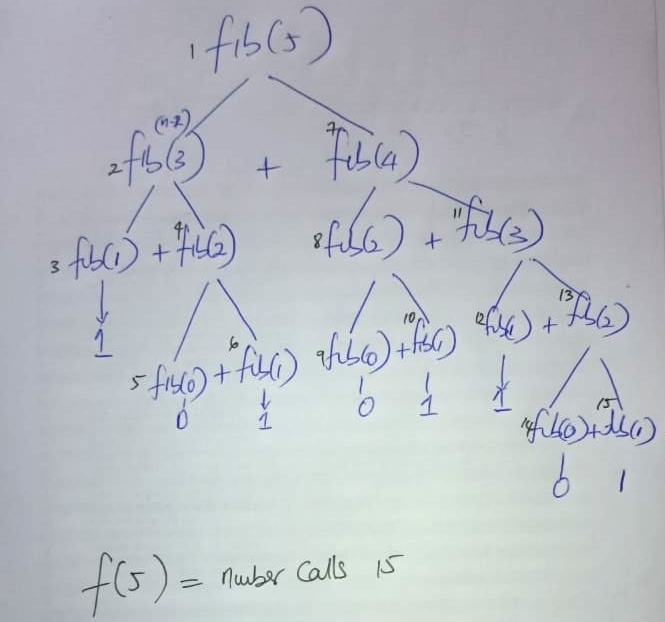 1 fib(5)
(n-2)
2 fib(3) + 7 fib(4)
3 fib(1) + 4 fib(2) 8 fib(2) + 11 fib(3)
1 5 fib(0) + 6 fib(1) 9 fib(0) + 10 fib(1) 12 fib(1) + 13 fib(2)
0 1 0 1 1 14 fib(0) + 15 fib(1)
0 1
f(5) = number calls 15